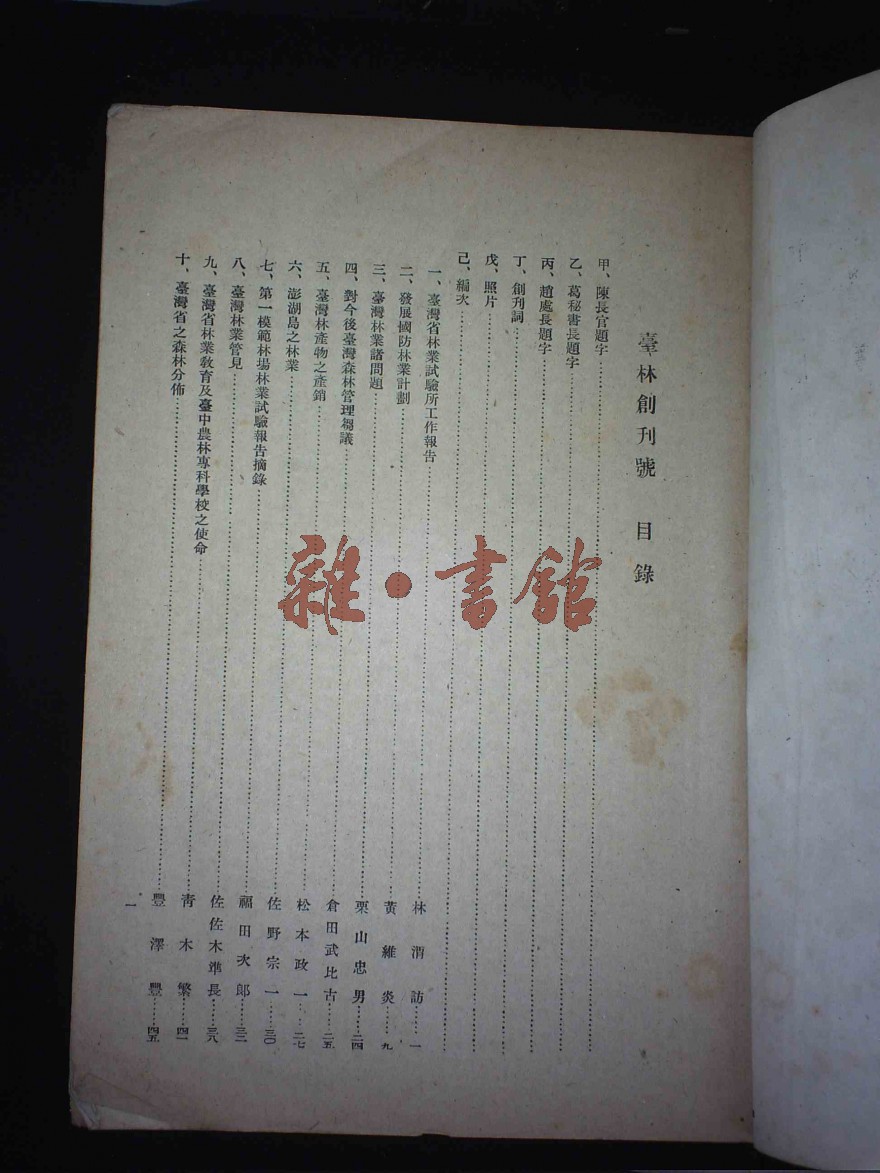 臺林創刊號　目錄
甲、陳長官題字
乙、葛秘書長題字
丙、趙處長題字
丁、創刊詞
戊、照片
己、編次
一、臺灣省林業試驗所工作報告 林渭訪 一
二、發展國防林業計劃 黃維炎 九
三、臺灣林業諸問題 栗山忠男 二四
四、對今後臺灣森林管理芻議 倉田武比古 二五
五、臺灣林產物之產銷 松本政一 二七
六、澎湖島之林業 佐野宗一 三〇
七、第一模範林場林業試驗報告摘錄 福田次郎 三三
八、臺灣林業管見 佐佐木準長 三八
九、臺灣省林業教育及臺中農林專科學校之使命 青木繁 四一
十、臺灣省之森林分佈 豐澤豐 四五
一
雜·書館